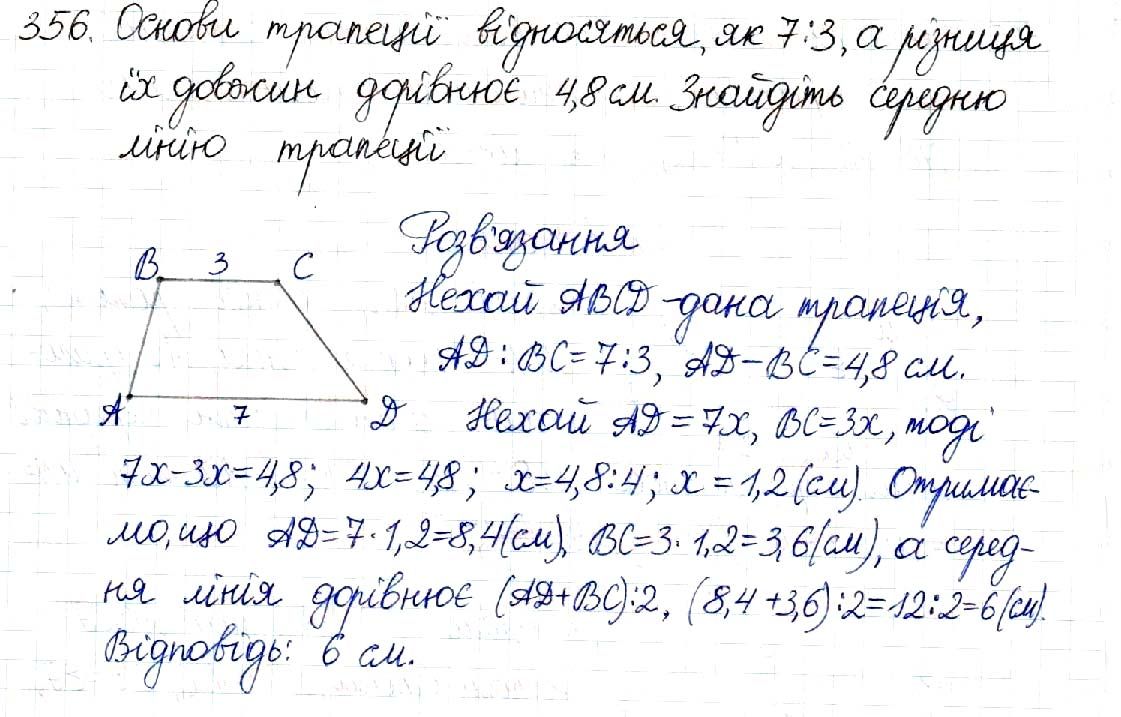 356. Основи трапеції відносяться, як 7:3, а різниця
їх довжин дорівнює 4,8 см. Знайдіть середню
лінію трапеції
Розв'язання
B 3 C
Нехай ABCD - дана трапеція,
AD : BC = 7:3, AD - BC = 4,8 см.
A 7 D
Нехай AD = 7x, BC = 3x, тоді
7x-3x=4,8; 4x=4,8; x=4,8:4; x = 1,2 (см). Отримає-
мо, що AD=7·1,2=8,4(см), BC=3·1,2=3,6(см), а серед-
ня лінія дорівнює (AD+BC):2, (8,4+3,6):2=12:2=6(см).
Відповідь: 6 см.